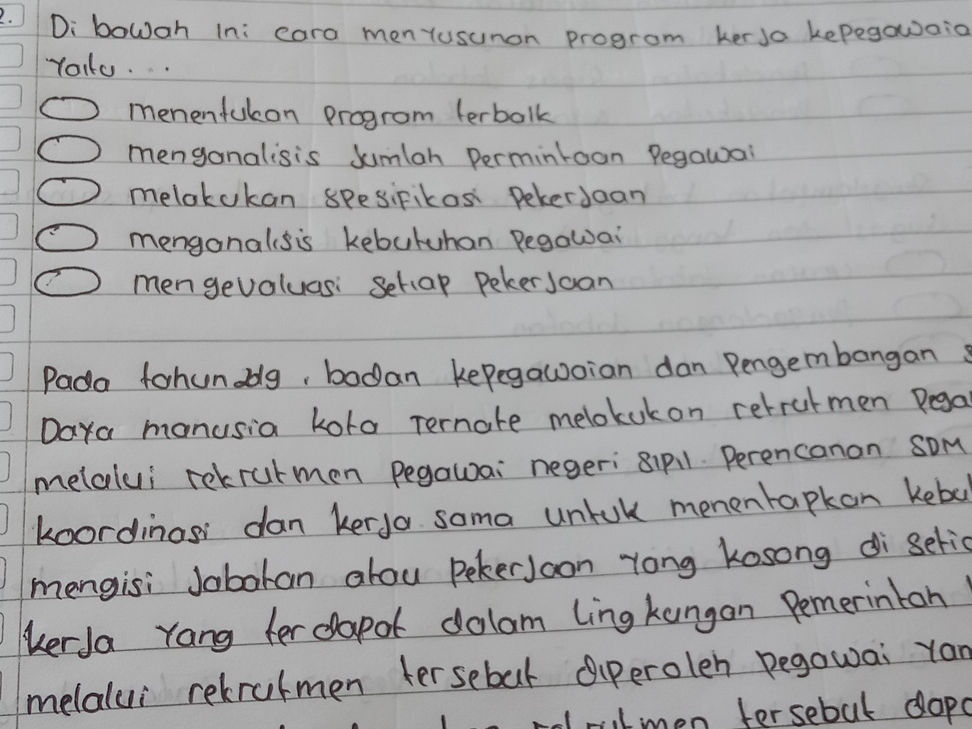 2. Di bawah ini cara menyusunan program kerja kepegawaia
yaitu...
menentukan program terbaik
menganalisis jumlah permintaan pegawai
melakukan spesifikasi pekerjaan
menganalisis kebutuhan pegawai
mengevaluasi setiap pekerjaan
Pada tahun , badan kepegawaian dan pengembangan s
Daya manusia kota Ternate melakukan retrutmen pega
melalui rekrutmen pegawai negeri sipil. perencanan SDM
koordinasi dan kerja sama untuk menentapkan kebu
mengisi jabatan atau pekerjaan yang kosong di setia
kerja yang terdapat dalam lingkungan pemerintah
melalui rekrutmen tersebut diperoleh pegawai yan
tersebut dapa